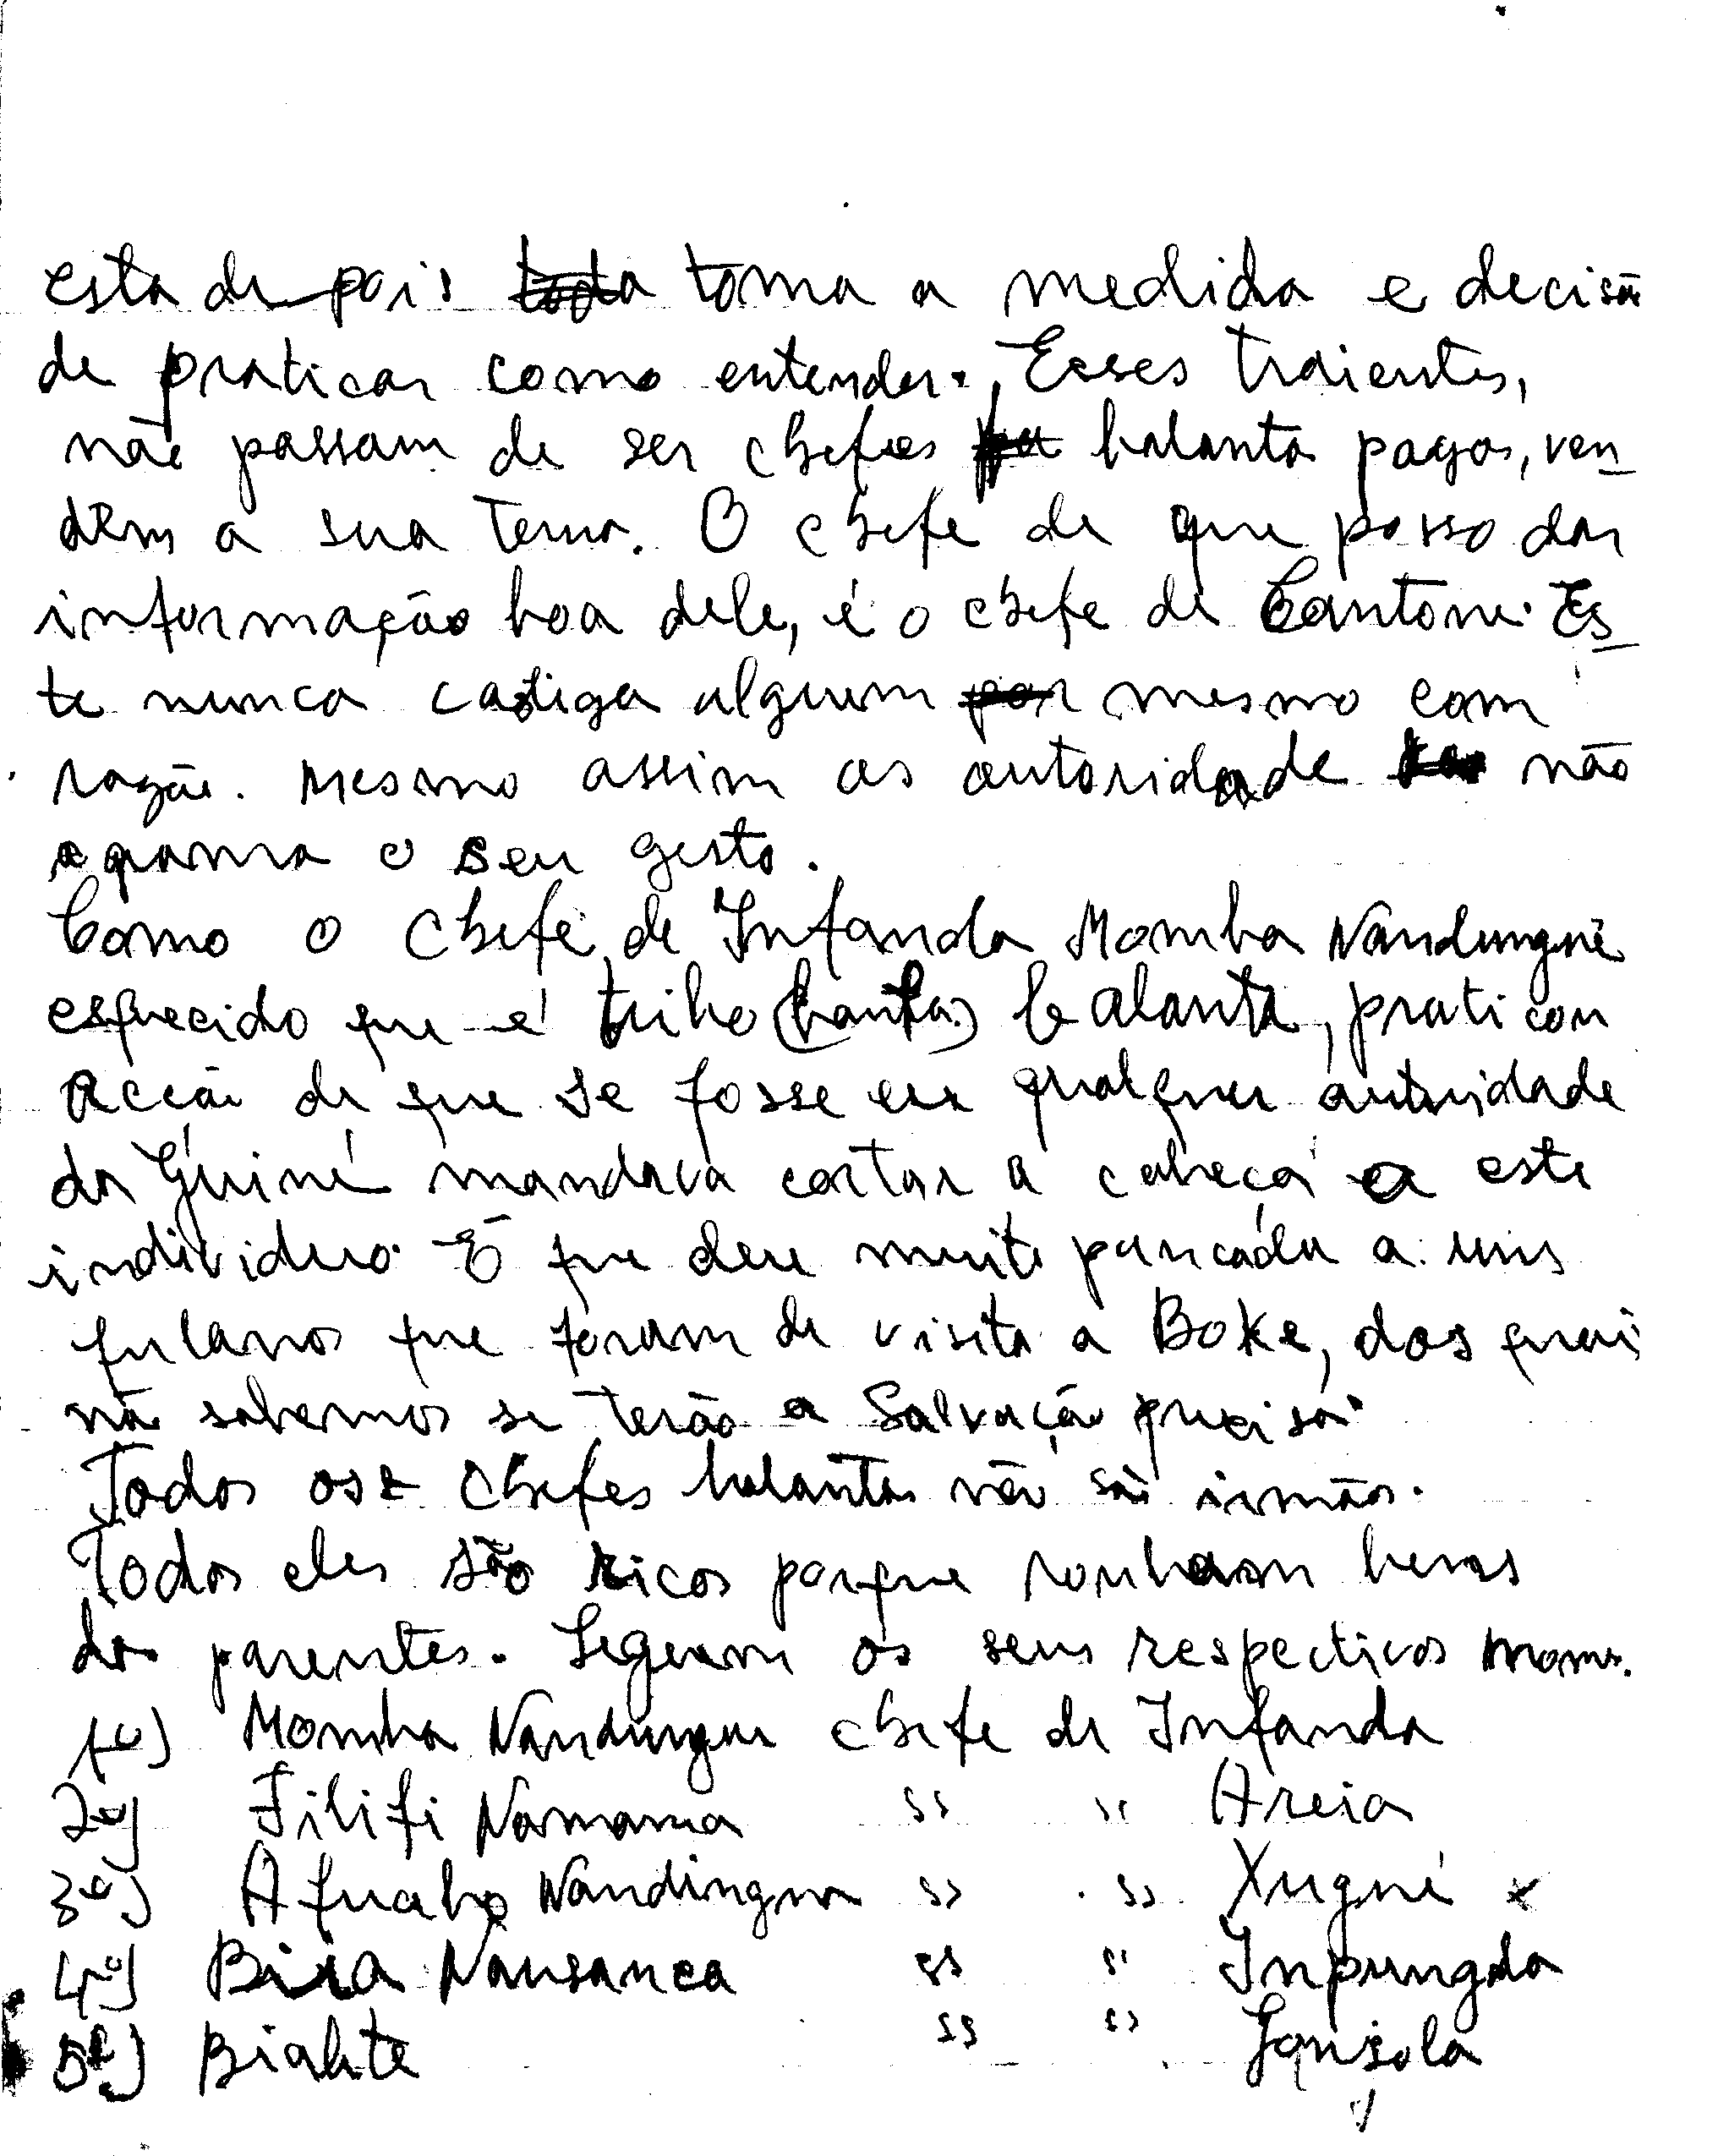 esta de pois toma a medida e decisão
de praticar como entender. Esses traientes,
não passam de ser chefes balanta pagos, ven
dem a sua terra. O chefe de que posso dar
informação boa dele, é o chefe de Cantone. Es
te nunca castiga alguem mesmo com
razão. Mesmo assim as autoridade não
o seu gesto.
Como o chefe de Infanda Momba Nandungué
esquecido que é balanta, praticou
acção de que se fosse eu qualquer autoridade
da Guiné mandava cortar a cabeça a este
individuo. É que deu muita pancada a uns
fulanos que foram de visita a Boke, dos quais
não sabemos se terão a salvação precisa.
Todos os chefes balantas não são irmãos.
Todos eles são ricos porque roubaram bens
dos parentes. Seguem os seus respectivos nomes.
1º) Momba Nandungue chefe de Infanda
2º) Filifi Namania " " Areia
3º) Afuabo Nandingna " " Xugué x
4º) Biria Nansanca " " Inpungda
5º) Biahte " " Janšola